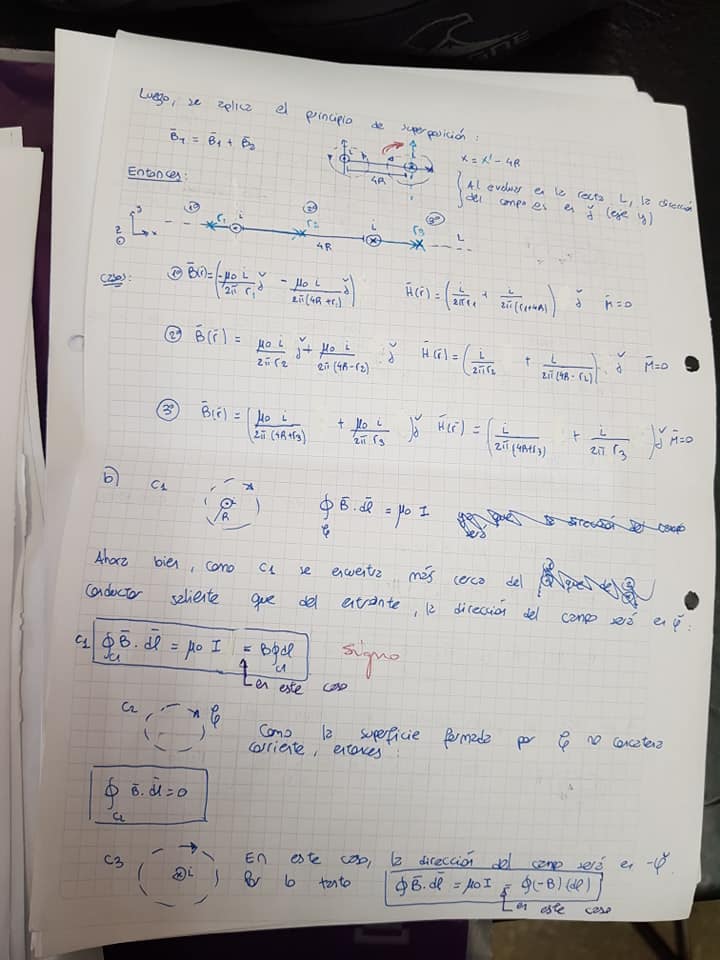 Luego, se aplica el principio de superposición:
B̄T = B̄1 + B̄2
4R
x = x' - 4R
Al evaluar en la recta L, la dirección
del campo es en ǰ (eje y)
Entonces:
1º 2º 3º
r1 i r2 4R i r3 L
caso:
1º B̄(r̄) = (-μ0 i / 2π r1 ǰ - μ0 i / 2π(4R+r1) ǰ) H̄(r̄) = (i / 2πr1 + i / 2π(r1+4R)) ǰ M̄=0
2º B̄(r̄) = μ0 i / 2π r2 ǰ + μ0 i / 2π(4R-r2) ǰ H̄(r̄) = (i / 2πr2 + i / 2π(4R-r2)) ǰ M̄=0
3º B̄(r̄) = (μ0 i / 2π(4R+r3) + μ0 i / 2π r3) ǰ H̄(r̄) = (i / 2π(4R+r3) + i / 2π r3) ǰ M̄=0
b) C1 i R ∮ B̄.dl̄ = μ0 I
Ahora bien, como C1 se encuentra más cerca del
conductor saliente que del entrante, la dirección del campo será en φ̌:
C1 ∮C1 B̄.dl̄ = μ0 I = B∮C1 dl signo
en este caso
C2
Como la superficie formada por no concatena
corriente, entonces:
∮C2 B̄.dl̄ = 0
C3 i En este caso, la dirección del campo será en -φ̌
Por lo tanto ∮B̄.dl̄ = μ0 I = ∮(-B)(dl)
en este caso